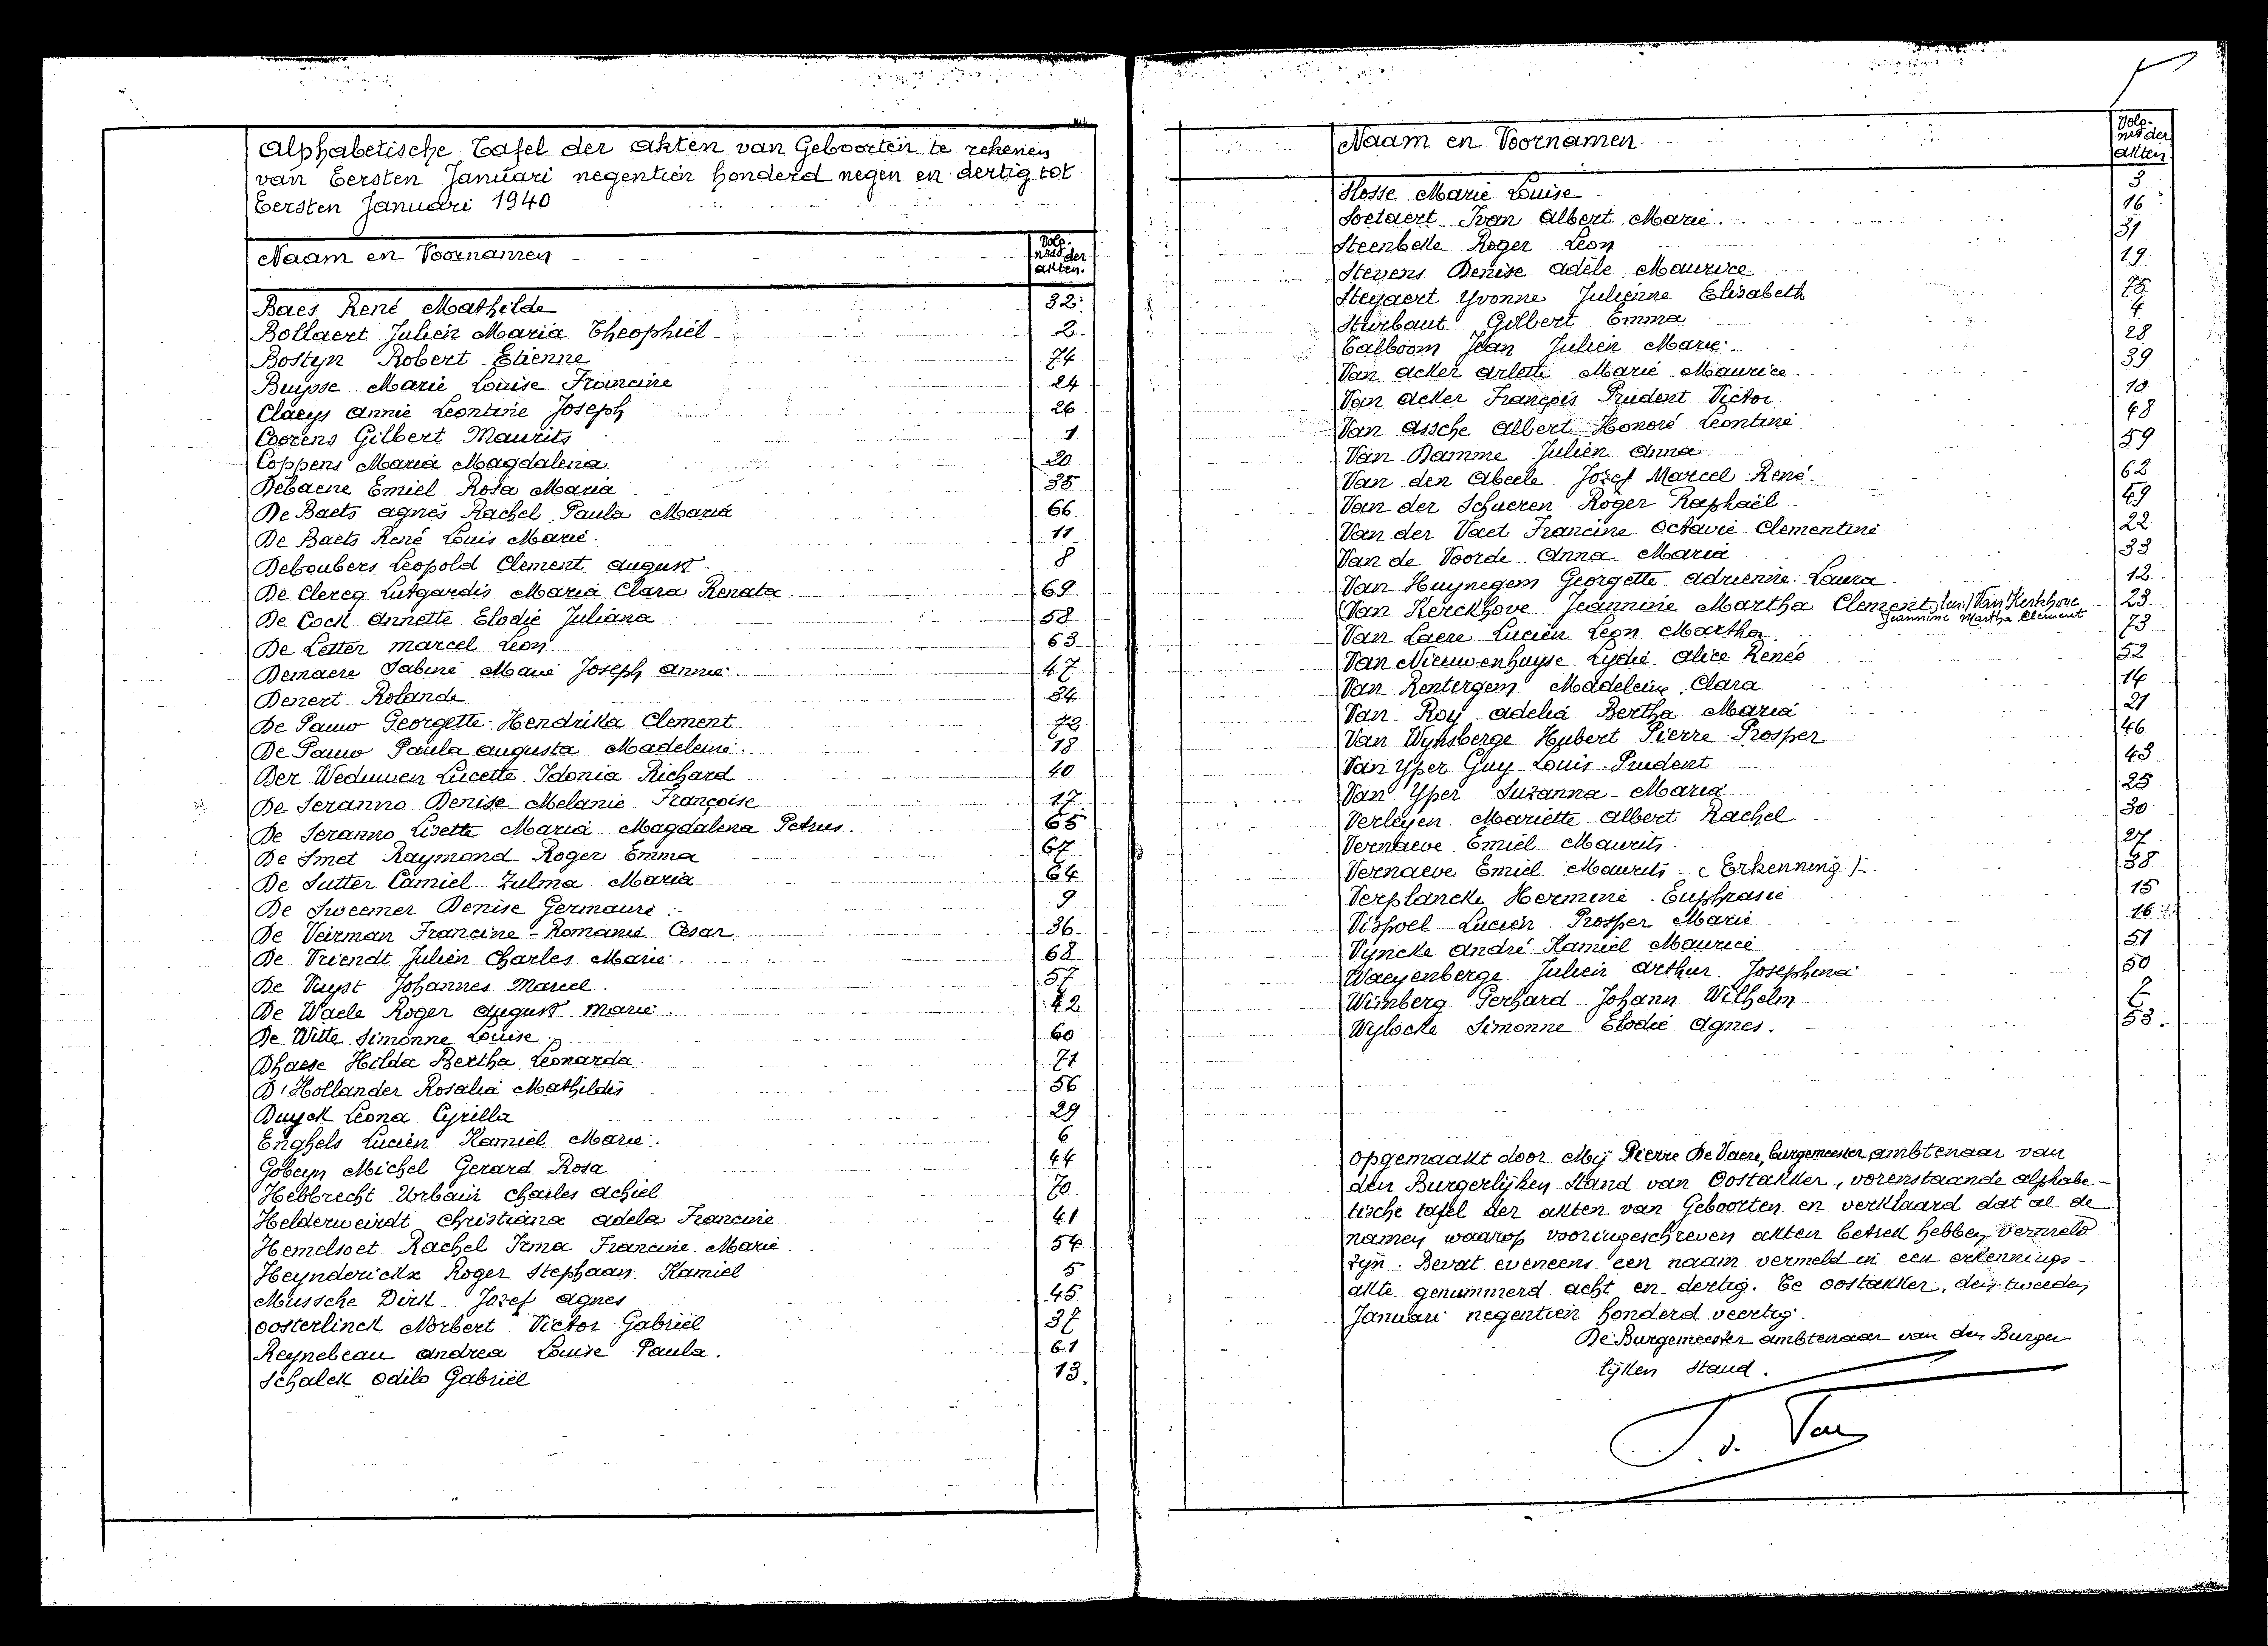 Alphabetische Tafel der Akten van Geboorten te rekenen
van Eersten Januari negentien honderd negen en dertig tot
Eersten Januari 1940
Naam en Voornamen
Volg-
nrs der
akten.
Baes René Mathilde 32
Bollaert Julien Maria Theophiel 2
Bostyn Robert Etienne 74
Buysse Marie Louise Francine 24
Claeys Annie Leontine Joseph 26
Coorens Gilbert Maurits 1
Coppens Maria Magdalena 20
Debaene Emiel Rosa Maria 35
De Baets Agnès Rachel Paula Maria 66
De Baets René Louis Marie 11
Deboubers Leopold Clement August 8
De Clercq Lutgardis Maria Clara Renata 69
De Cock Annette Elodie Juliana 58
De Letter Marcel Leon 63
Demaere Sabine Marie Joseph Annie 47
Denert Rolande 34
De Pauw Georgette Hendrika Clement 72
De Pauw Paula Augusta Madeleine 18
Der Weduwen Lucette Idonia Richard 40
De Seranno Denise Melanie Françoise 17
De Seranno Lisette Maria Magdalena Petrus 65
De Smet Raymond Roger Emma 67
De Sutter Camiel Zulma Maria 64
De Sweemer Denise Germaine 9
De Veirman Francine Romanie Cesar 36
De Vriendt Julien Charles Marie 68
De Vuyst Johannes Marcel 57
De Waele Roger August Marie 42
De Witte Simonne Louise 60
Dhaese Hilda Bertha Leonarda 71
D'Hollander Rosalia Mathildis 56
Duyck Leona Cyrilla 29
Enghels Lucien Kamiel Marie 6
Gobeyn Michel Gerard Rosa 44
Hebbrecht Urbain Charles Achiel 70
Helderweirdt Christiana Adela Francine 41
Hemelsoet Rachel Irma Francine Marie 54
Heynderickx Roger Stephaan Kamiel 5
Mussche Dirk Jozef Agnes 45
Oosterlinck Norbert Victor Gabriël 37
Reynebeau Andrea Louise Paula 61
Schalck Odilo Gabriël 13
Naam en Voornamen
Volg-
nrs der
akten
Slosse Marie Louise 3
Soetaert Ivan Albert Marie 16
Steenbeke Roger Leon 31
Stevens Denise Adèle Maurice 19
Steyaert Yvonne Julienne Elisabeth 75
Sturbaut Gilbert Emma 4
Talboom Jean Julien Marie 28
Van Acker Arlette Marie Maurice 39
Van Acker François Prudent Victor 10
Van Assche Albert Honoré Leontine 48
Van Damme Julien Anna 59
Van den Abeele Jozef Marcel René 62
Van der Schueren Roger Raphaël 49
Van der Vaet Francine Octavie Clementine 22
Van de Voorde Anna Maria 33
Van Huynegem Georgette Adrienne Laura 12
(Van Kerckhove Jeannine Martha Clement, (lees) Van Kerkhove 23
Jeannine Martha Clement
Van Laere Lucien Leon Martha 73
Van Nieuwenhuyse Lydie Alice Renée 52
Van Rentergem Madeleine Clara 14
Van Roy Adelia Bertha Maria 21
Van Wynsberge Hubert Pierre Prosper 46
Van Yper Guy Louis Prudent 43
Van Yper Suzanna Maria 25
Verleyen Mariette Albert Rachel 30
Vernaeve Emiel Maurits 27
Vernaeve Emiel Maurits (Erkenning) 38
Verplancke Hermine Euphrasie 15
Vispoel Lucien Prosper Marie 16
Vyncke André Kamiel Maurice 51
Waeyenberge Julien Arthur Josephina 50
Wimberg Gerhard Johann Wilhelm
Wylocke Simonne Elodie Agnes. 53.
Opgemaakt door Mij Pierre De Vaere, burgemeester ambtenaar van
den Burgerlijken Stand van Oostakker, vorenstaande alphabe-
tische tafel der akten van Geboorten en verklaard dat al de
namen waarop vooringeschreven akten betrek hebben, vermeld
zijn. Bevat eveneens een naam vermeld in een erkennings-
akte genummerd acht en dertig. Te Oostakker, den tweeden
Januari negentien honderd veertig.
De Burgemeester ambtenaar van den Burger
lijken Stand.